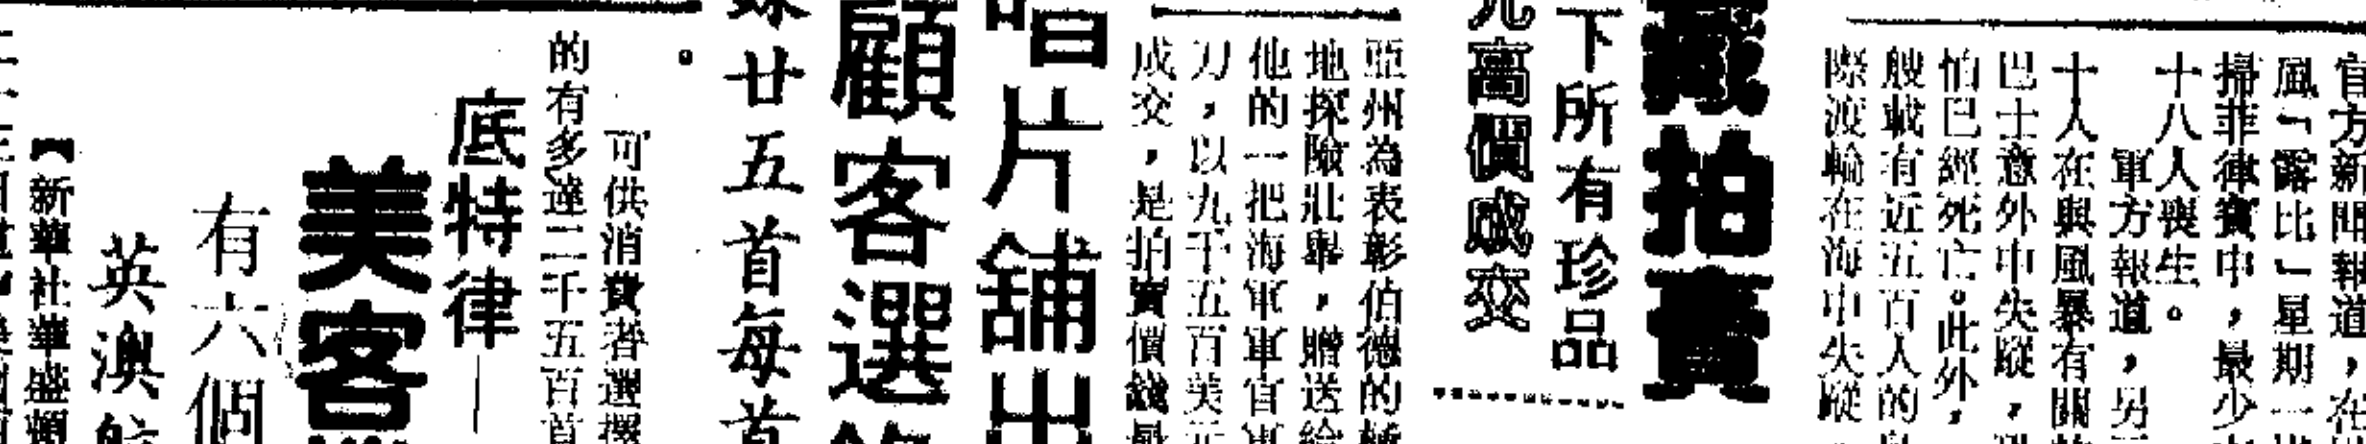 官方新聞報道，在
風「露比」星期一
掃菲律賓中，最少
十八人喪生。
軍方報道，另
十人在與風暴有關
巴士意外中失蹤，
怕已經死亡。此外，
艘載有近五百人的
際渡輪在海中失蹤，
藏拍賣
下所有珍品
元高價成交
亞州為表彰伯德的極
地探險壯舉，贈送給
他的一把海軍軍官軍
刀，以九千五百美元
成交，是拍賣價錢最
唱片舖出
顧客選
廿五首每首
。
可供消費者選擇
的有多達二千五百首
底特律—
美客
有六個
英澳航
【新華社華盛頓